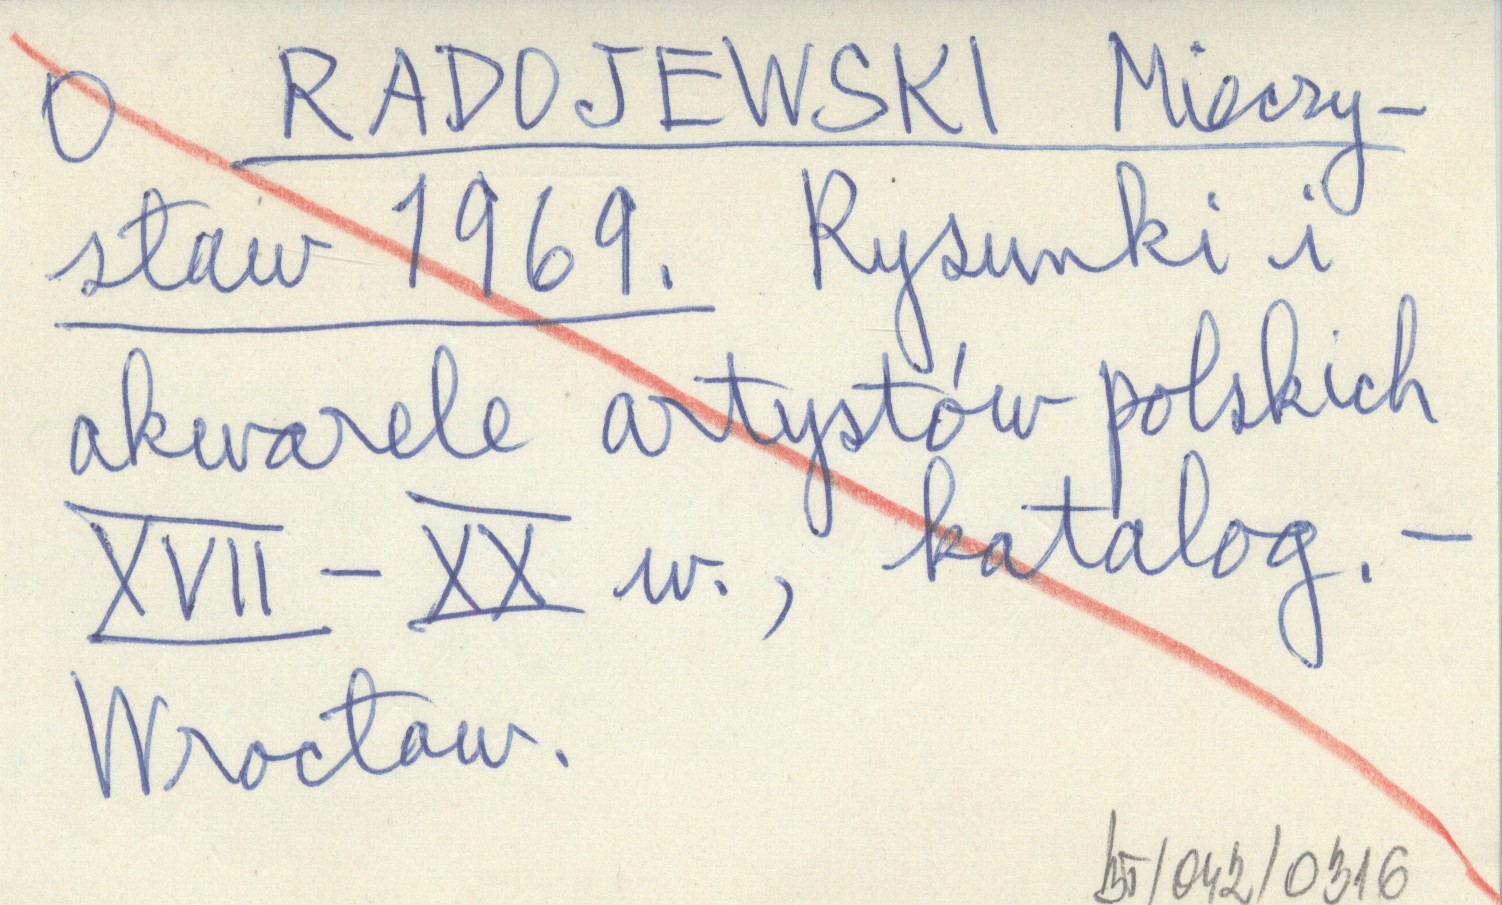 O RADOJEWSKI Mieczy-
sław 1969. Rysunki i
akwarele artystów polskich
XVII – XX w., katalog. –
Wrocław.
/042/0316